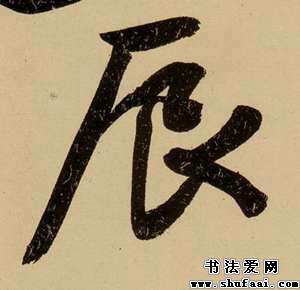 辰
书法爱网
www.shufaai.com